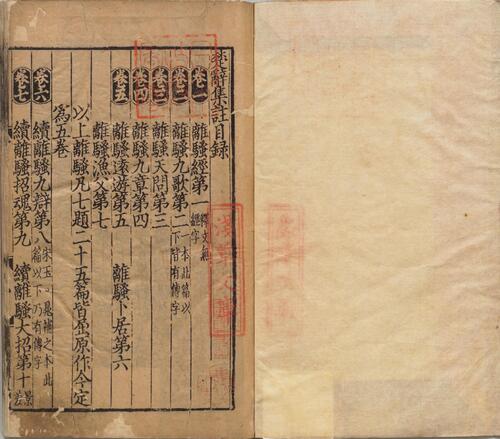 楚辭集註目錄
卷一 離騷經第一 釋文無經字
卷二 離騷九歌第二 一本此篇以下皆有傳字
卷三 離騷天問第三
卷四 離騷九章第四
卷五 離騷遠遊第五 離騷卜居第六
離騷漁父第七
以上離騷凡七題二十五篇皆屈原作今定
為五卷
卷六 續離騷九辯第八 宋玉 晁補之本此篇以下乃有傳字
卷七 續離騷招魂第九 續離騷大招第十 景差